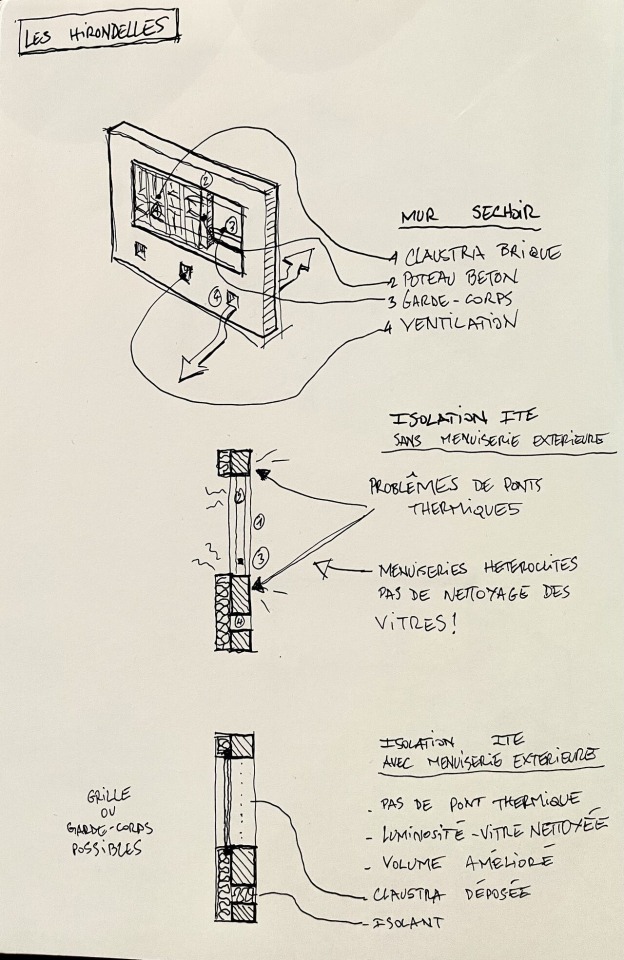 LES HIRONDELLES
MUR SECHOIR
1 CLAUSTRA BRIQUE
2 POTEAU BETON
3 GARDE-CORPS
4 VENTILATION
1
2
3
4
ISOLATION ITE
SANS MENUISERIE EXTERIEURE
PROBLÊMES DE PONTS
THERMIQUES
2
1
3
4
MENUISERIES HETEROCLITES
PAS DE NETTOYAGE DES
VITRES!
ISOLATION ITE
AVEC MENUISERIE EXTERIEURE
- PAS DE PONT THERMIQUE
- LUMINOSITÉ - VITRE NETTOYÉE
- VOLUME AMÉLIORÉ
- CLAUSTRA DÉPOSÉE
- ISOLANT
GRILLE
OU
GARDE-CORPS
POSSIBLES